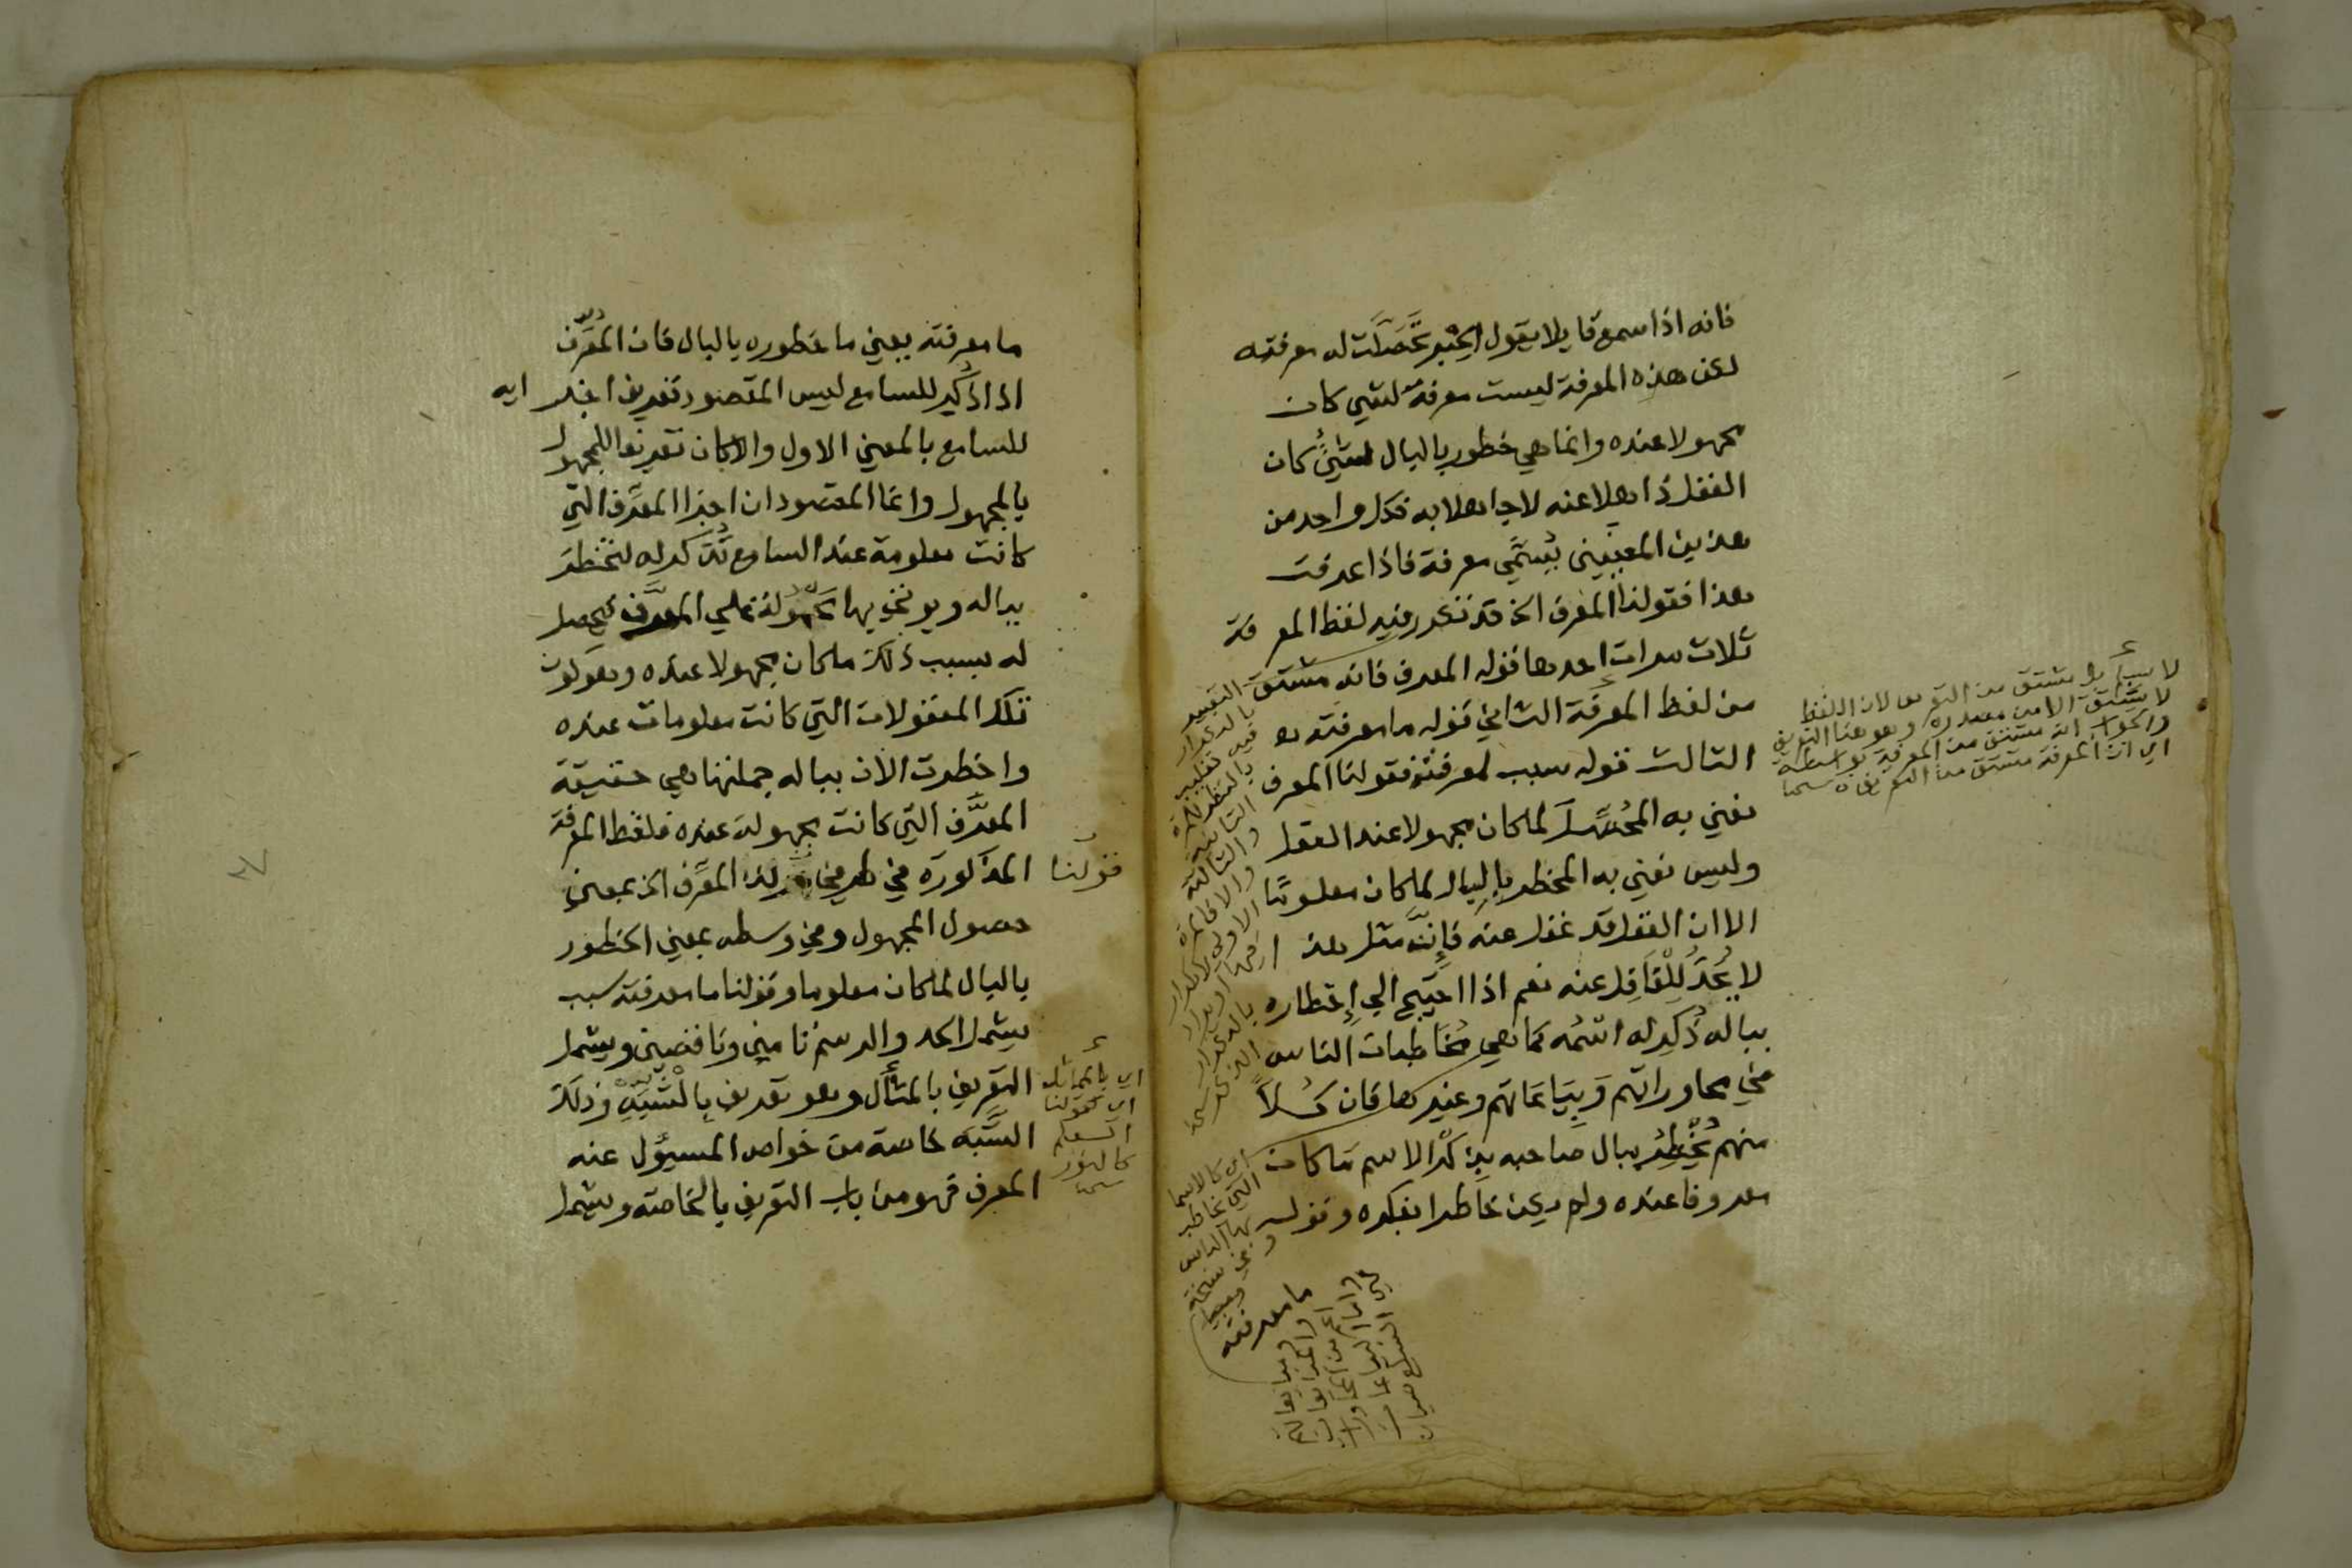 فانه اذا سمع قايلا يقول الخبر تحصلت له معرفته
لكن هذه المعرفة ليست معرفة لشي كان
مجهولا عنده وانما هي خطور بالبال لشيءٍ كان
العقل ذاهلا عنه لا جاهلا به فكل واحد من
هذين المعنيين يُسمَّي معرفة فاذا عرفت
هذا فقولنا المعرف الخ قد تكرر فيه لفظ المعرفة
ثلاث مرات احدها قوله المعرف فانه مشتق
من لفظ المعرفة الثاني قوله ما معرفته
الثالث قوله سبب لمعرفته فقولنا المعرف
نعني به المُحَصِّل لما كان مجهولا عند العقل
وليس نعني به المخطر بالبال لما كان معلومًا
الا ان العقل قد غفل عنه فإنَّ مثل هذا
لا يُحَدُّ لِلْغَافِل عنه نعم اذا احتيج الي إخطاره
بباله ذُكِر له اسمُه كما هي مُخَاطبات الناس
في محاوراتهم وَبِيَاعَاتهم وغيرها فان كُلاًّ
منهم يُخْطِرُ ببال صاحبه بِذِكْرِ الاسم مَا كان
معروفا عنده ولم يكن خاطرا بفكره وقوله
ما معرفته
لا يقال مشتق من التعريف لان اللفظ
لا يشتق الا من مصدره وهو هنا التعريف
والجواب انه مشتق من المعرفة بواسطة
اي ان المعرفة مشتق منها التعريف
التعبير
بالتكرار
فيه تغليب
بالنظر للمرة
الثانية
والثالثة
والا فالمرة
الاولي لا تكرار
فيها
اي كالاسما
التي تخاطب
بها الناس
وفي نسخة
ما معرفته يعني ما خطوره بالبال فان المعرِّف
اذا ذُكِر للسامع ليس المقصود تعريف اجزايه
للسامع بالمعني الاول والا كان تعريفا للمجهول
بالمجهول وانما المقصود ان اجزا المعرِّف التي
كانت معلومة عند السامع تُذكر له لتخطر
بباله ويوتي بها محمولة علي المعرَّف فيحصل
له بسبب ذلك ما كان مجهولا عنده وتكون
تلك المعقولات التي كانت معلومات عنده
واخطرت الان بباله جملتها هي حقيقة
المعرَّف التي كانت مجهولة عنده فلفظ المعرفة
المذكورة في طرفي قولنا المعرِّف الخ بمعني
حصول المجهول وفي وسطه بمعني الخطور
بالبال لما كان معلوما وقولنا ما معرفته سبب
يشمل الحد والرسم تامين وناقصين ويشمل
التعريف بالمثال وهو تعريف بالشَّبَه وذلك
الشَّبَه خاصة من خواص المسيؤل عنه
المعرف فهو من باب التعريف بالخاصة ويشمل
قولنا
اي بالمماثل
اي كقولنا
العلم
كالنور